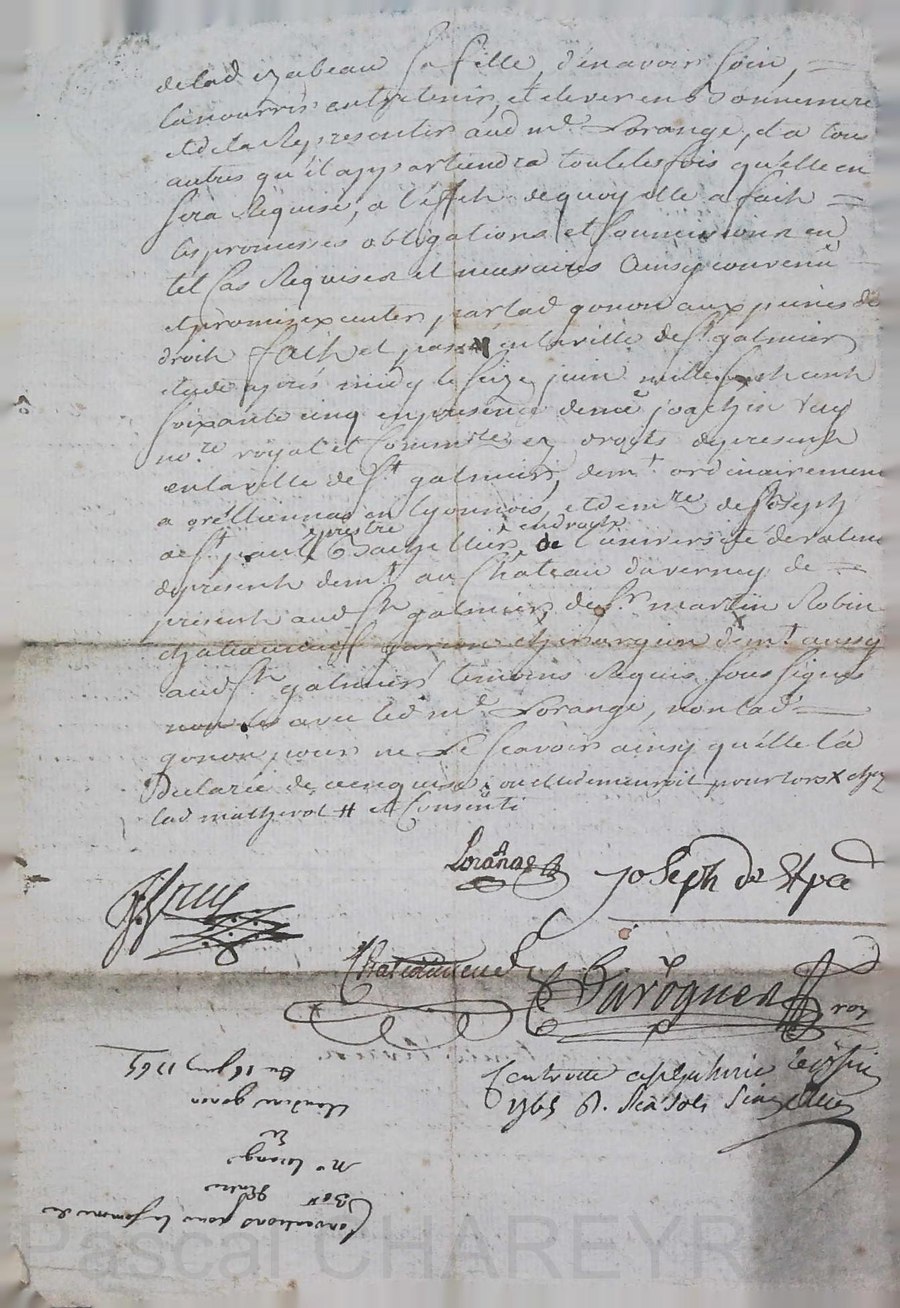 de lad izabeau sa fille, d'en avoir soin,
la nourrir entretenir, et elever en
et de la Representer aud me Lorange, et a tous
autres qu'il appartiendra toutes les fois qu'elle en
sera Requise, a l'effet de quoy elle a fait
les promesses obligations et soumissions en
tel Cas Requises et necessaires Ainsy convenu
et promis executer par lad gonon aux peines de
droit fait et passé en la ville de st galmier
etude après midy le seize juin mille sept cent
soixante cinq en presence de me joachin
nore royal et Commre ez droits de present
en la ville de St galmier, demt ordinairement
a grézieu en Lyonnois, et de mre de Joseph
de St paul prestre Bachellier en droits de l'université de valence
de present demt au Chateau de
present aud st galmier, de sr martin Robin
chateauneuf chirurgien demt aussy
aud St galmier temoins Requis soussignés
avec led me Lorange, non lad
gonon pour ne Le scavoir ainsy qu'elle l'a
Declaré de ce enquise pour lors X chez
lad matherot # et Consenti
Lorange
Joseph de St pa
Chateauneuf
Baroguer
roy
Controllé a St galmier le
1765 R. six sols
Conventions pour la somme de
30 ₶
Entre
Me Lorange
Et
Claudine gonon
Du 16 juin 1765
Pascal CHAREYR